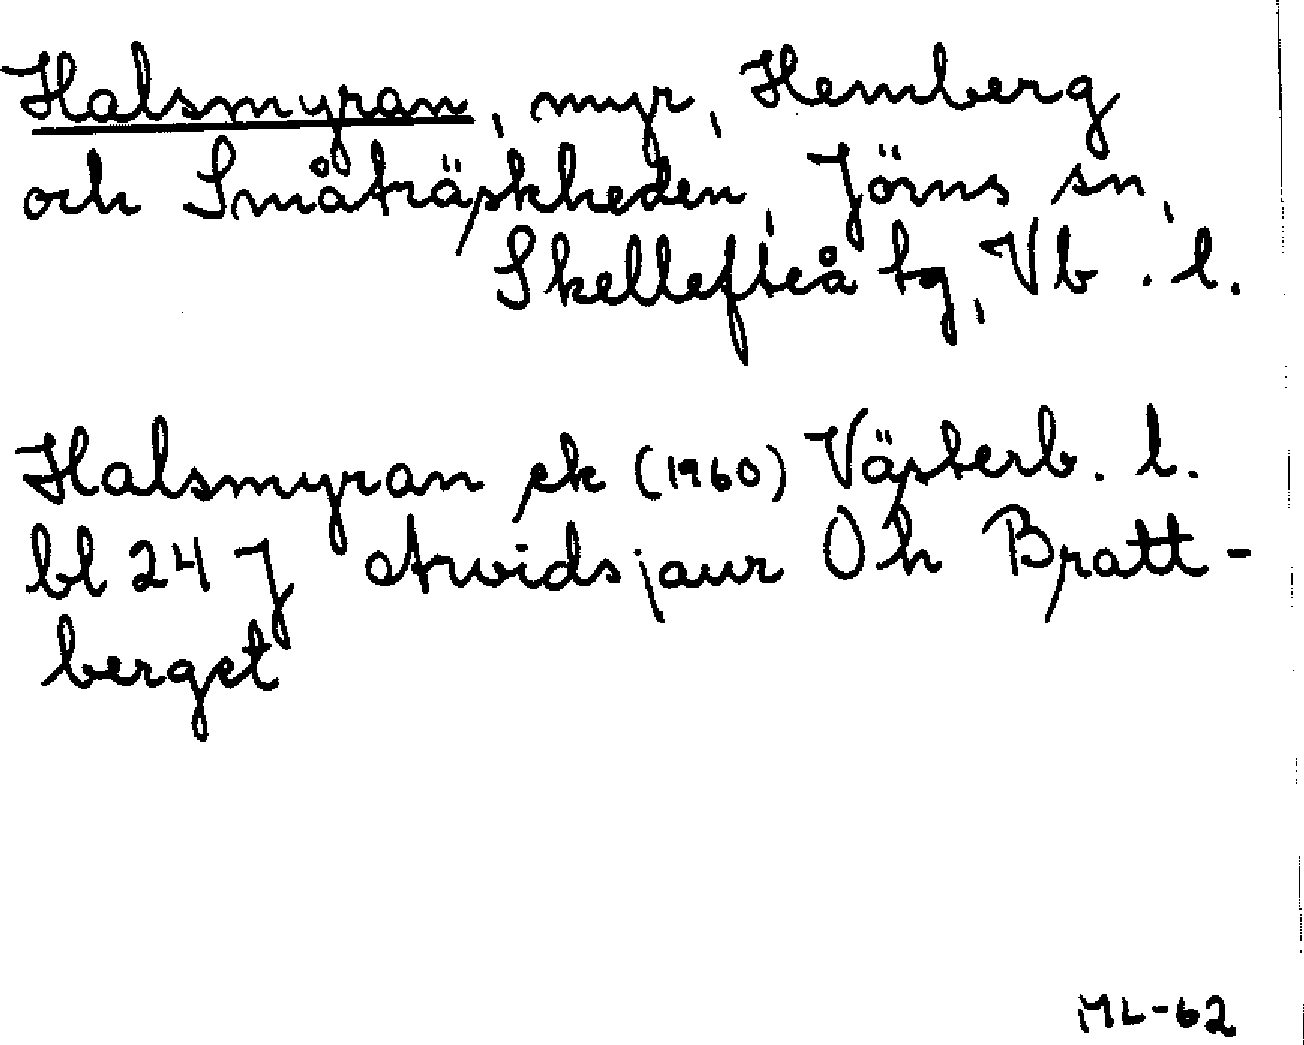 Halsmyran, myr, Hemberg
och Småträskheden, Jörns sn,
Skellefteå tg, Vb. l.
Halsmyran ek (1960) Västerb. l.
bl 24 J Arvidsjaur Öh Bratt-
berget
ML-62